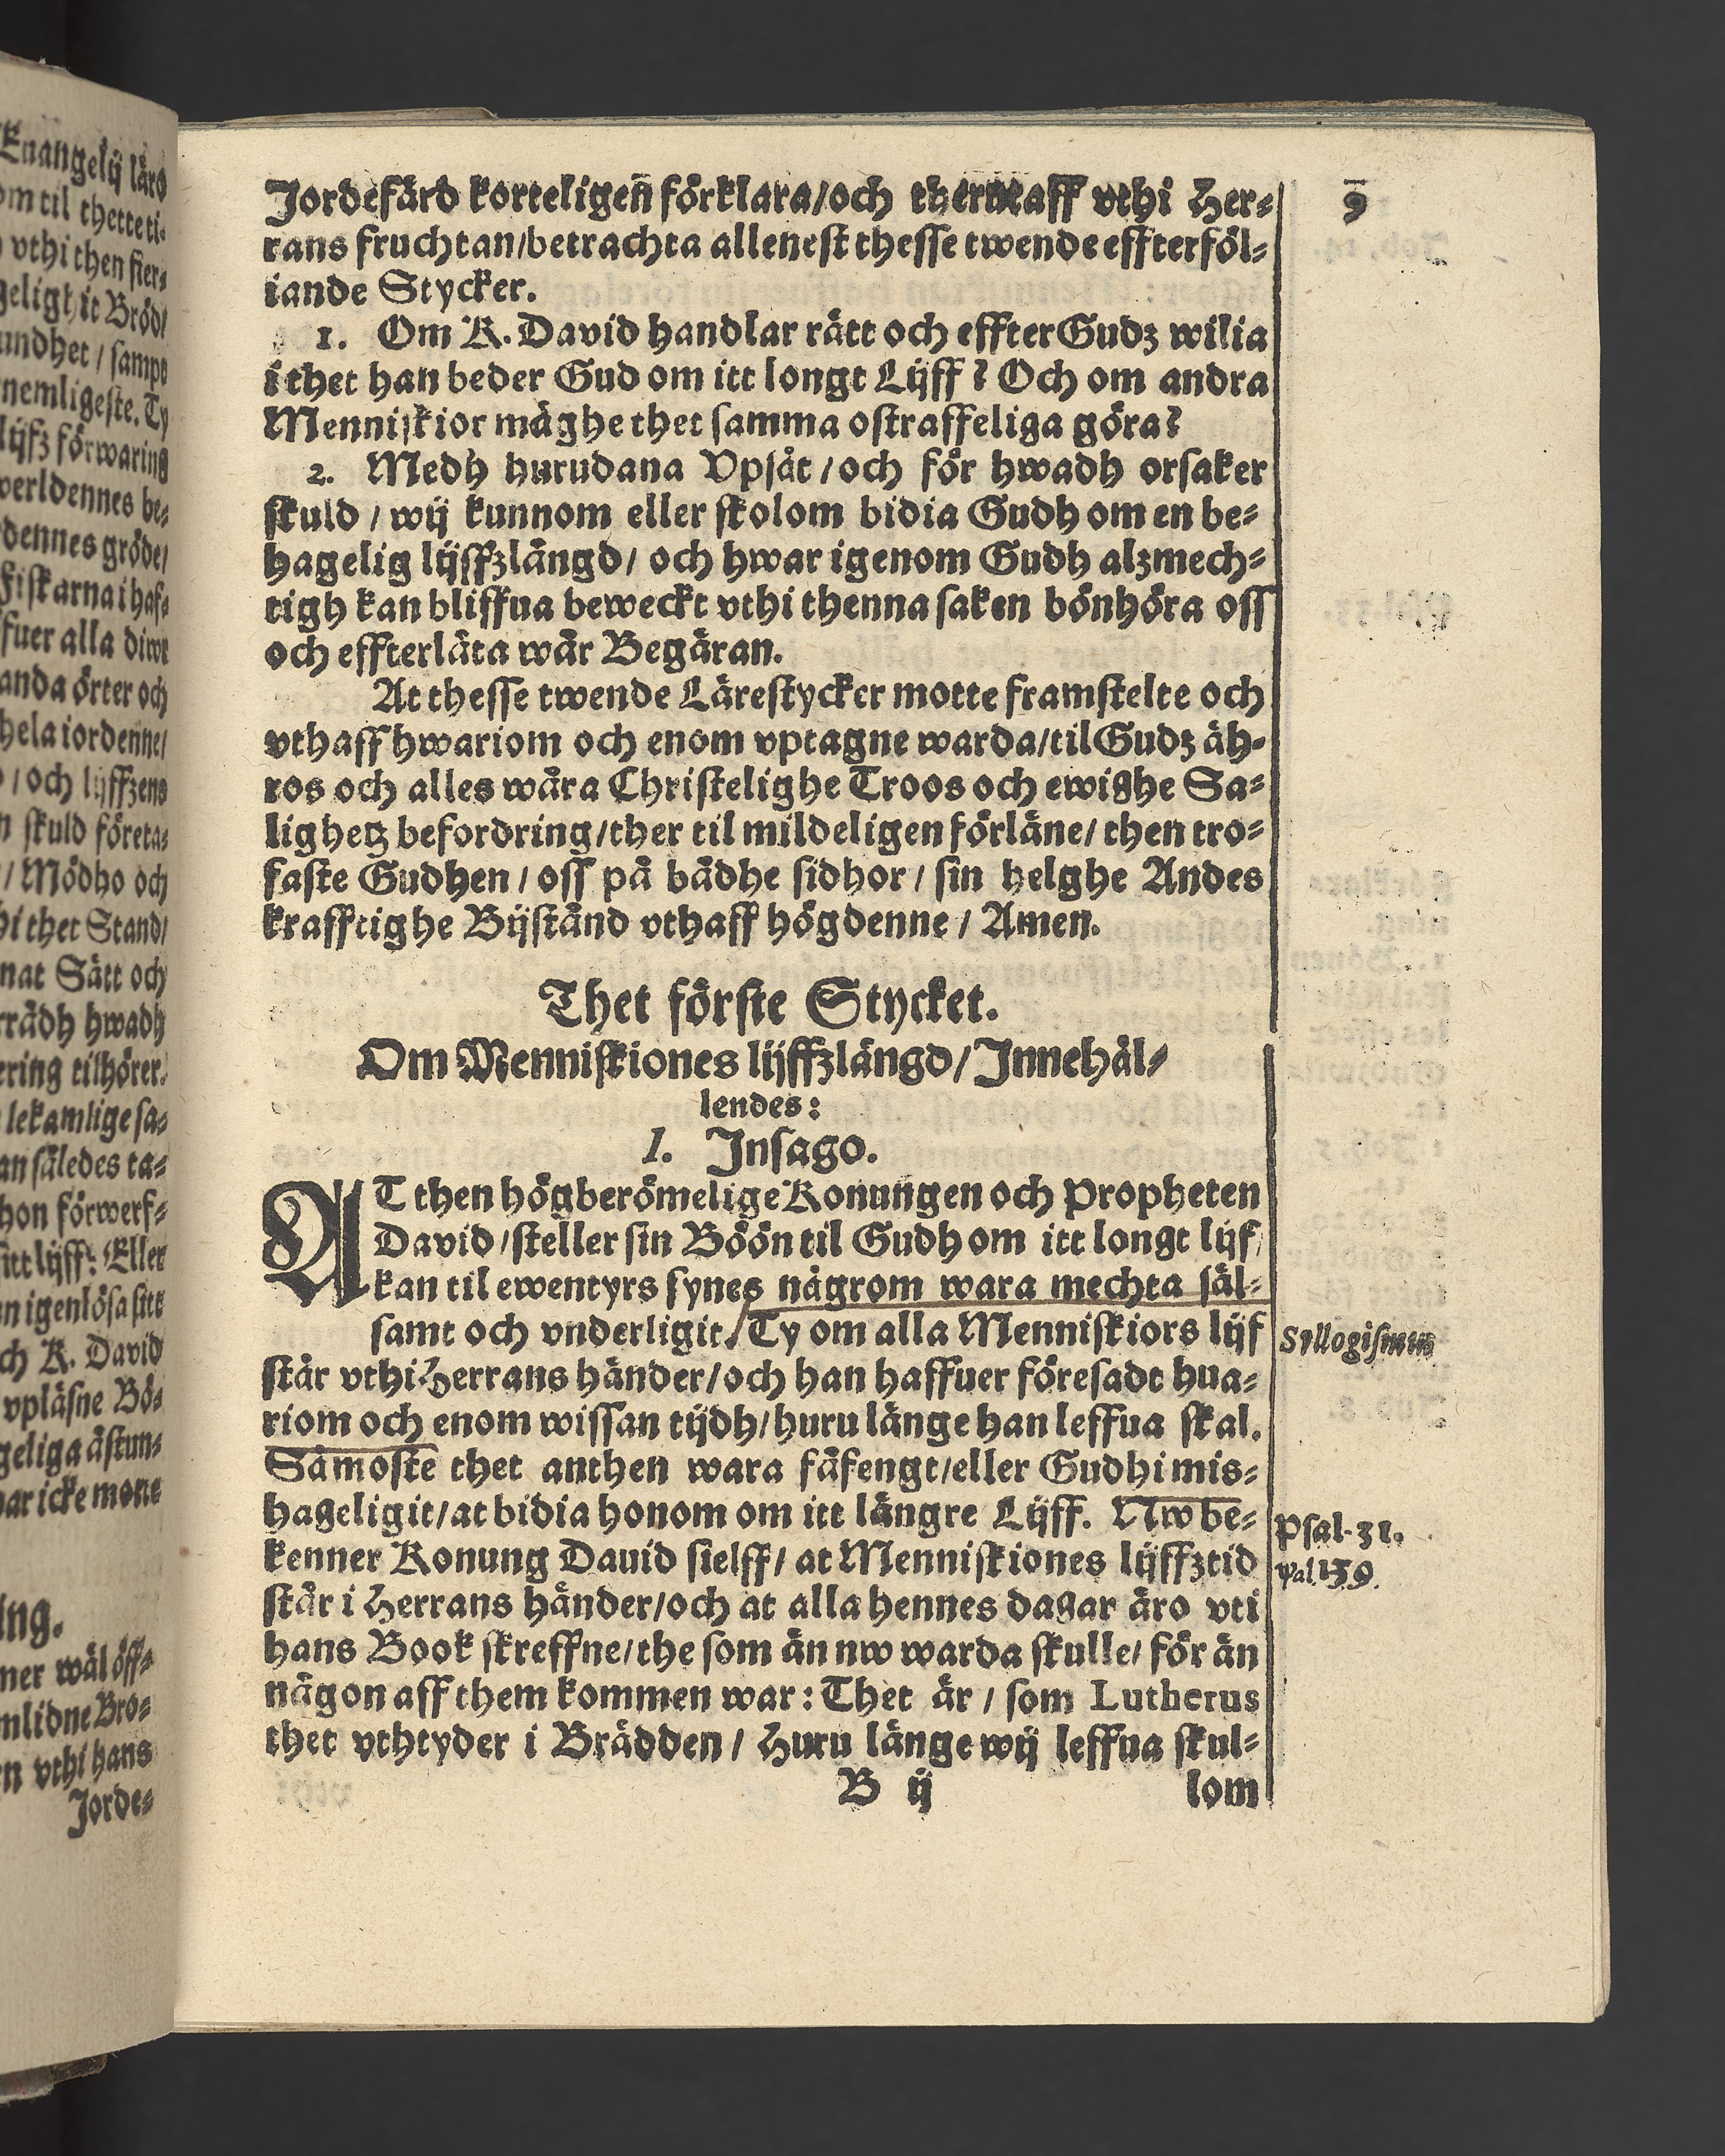 Euangelij lärd
om til thette ti-
vthi then fier-
geligh it Bröd/
undhet / sampt
nemligeste. Ty
lijfz förwaring
werldennes be-
dennes gröde/
Fiskarna i haf-
fuer alla diwr
anda örter och
hela iordenne/
/ och lijffzens
skuld företa-
/ Mödho och
hi thet Stand/
nat Sätt och
rådh hwadh
ering tilhörer.
lekamlige sa-
an således ta-
hon förwerf-
itt lijff: Eller
igenlösa sitt
ch K. David
vpläsne Bö-
geliga åstun-
har icke mone
ing.
ner wäl öff-
mlidne Bro-
n vthi hans
Jorde-
9
Jordefärd korteligen förklara/och ther vthaff vthi Her-
rans fruchtan/betrachta allenest thesse twende effterföl-
iande Stycker.
1. Om K. David handlar rätt och effter Gudz wilia
i thet han beder Gud om itt longt Lijff? Och om andra
Menniskior måghe thet samma ostraffeliga göra?
2. Medh hurudana Vpsåt/och för hwadh orsaker
skuld / wij kunnom eller skolom bidia Gudh om en be-
hagelig lijffzlängd/ och hwar igenom Gudh alzmech-
tigh kan bliffua beweckt vthi thenna saken bönhöra oss
och effterlåta wår Begäran.
At thesse twende Lärestycker motte framstelte och
vthaff hwariom och enom vptagne warda/til Gudz äh-
ros och alles wåra Christelighe Troos och ewighe Sa-
lighetz befordring/ther til mildeligen förläne/ then tro-
faste Gudhen / oss på bådhe sidhor / sin helghe Andes
krafftighe Bijstånd vthaff högdenne / Amen.
Thet förste Stycket.
Om Menniskiones lijffzlängd/ Innehål-
lendes:
1. Insago.
AT then högberömelige Konungen och Propheten
David/steller sin Böön til Gudh om itt longt lijf/
kan til ewentyrs synes någrom wara mechta säl-
samt och vnderligit. Ty om alla Menniskiors lijf
Syllogismus
står vthi Herrans händer/och han haffuer föresadt hua-
riom och enom wissan tijdh/huru länge han leffua skal.
Såmoste thet anthen wara fåfengt/eller Gudhi mis-
hageligit/at bidia honom om itt längre Lijff. Nw be-
Psal. 31.
kenner Konung Dauid sielff/ at Menniskiones lijffztid
Psal. 139.
står i Herrans händer/och at alla hennes dagar äro vti
hans Book skreffne/the som än nw warda skulle/ för än
någon aff them kommen war: Thet är / som Lutherus
thet vthtyder i Brädden / Huru länge wij leffua skul-
B ij
lom